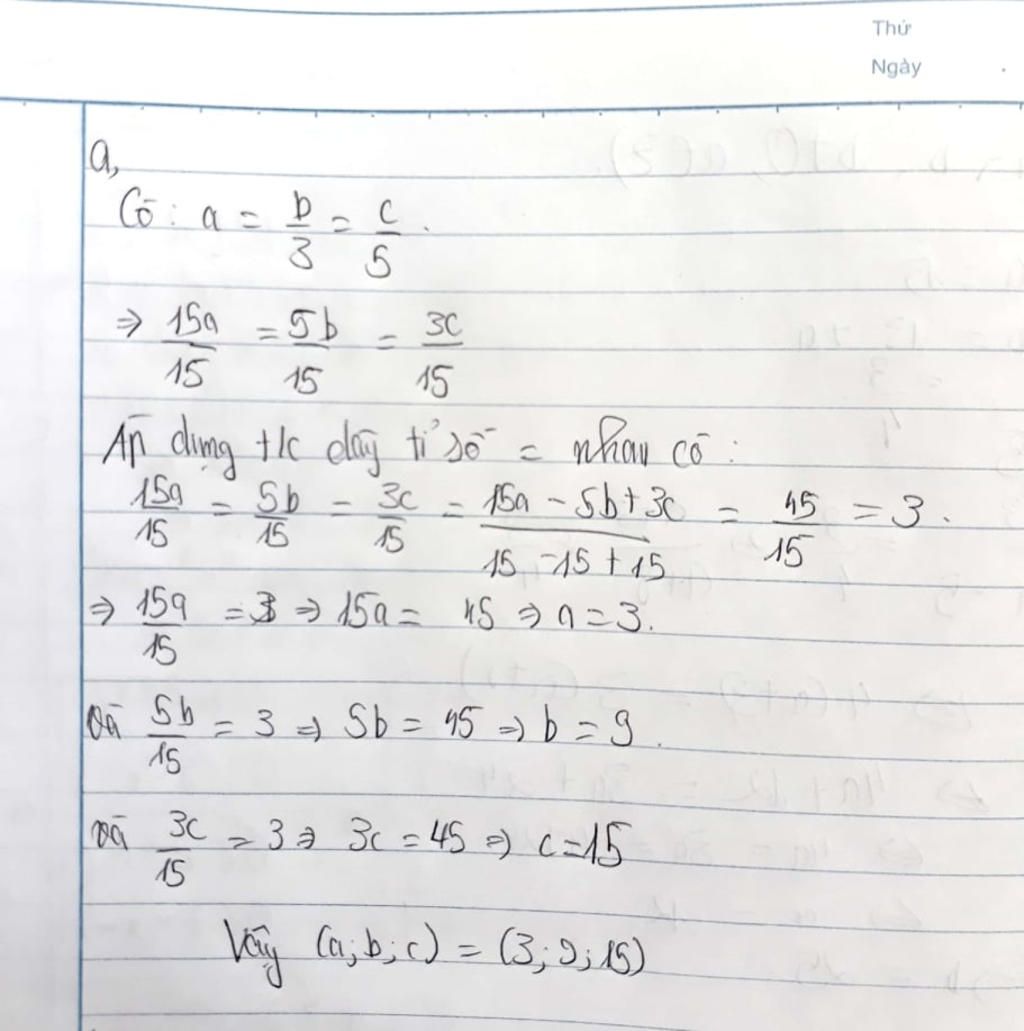 Thứ
Ngày
a,
Có: a = b/3 = c/5.
⇒ 15a/15 = 5b/15 = 3c/15
Áp dụng t/c dãy tỉ số = nhau có:
15a/15 = 5b/15 = 3c/15 = (15a - 5b + 3c)/(15 - 15 + 15) = 45/15 = 3.
⇒ 15a/15 = 3 ⇒ 15a = 45 ⇒ a = 3.
và 5b/15 = 3 ⇒ 5b = 45 ⇒ b = 9.
và 3c/15 = 3 ⇒ 3c = 45 ⇒ c = 15
Vậy (a; b; c) = (3; 9; 15)